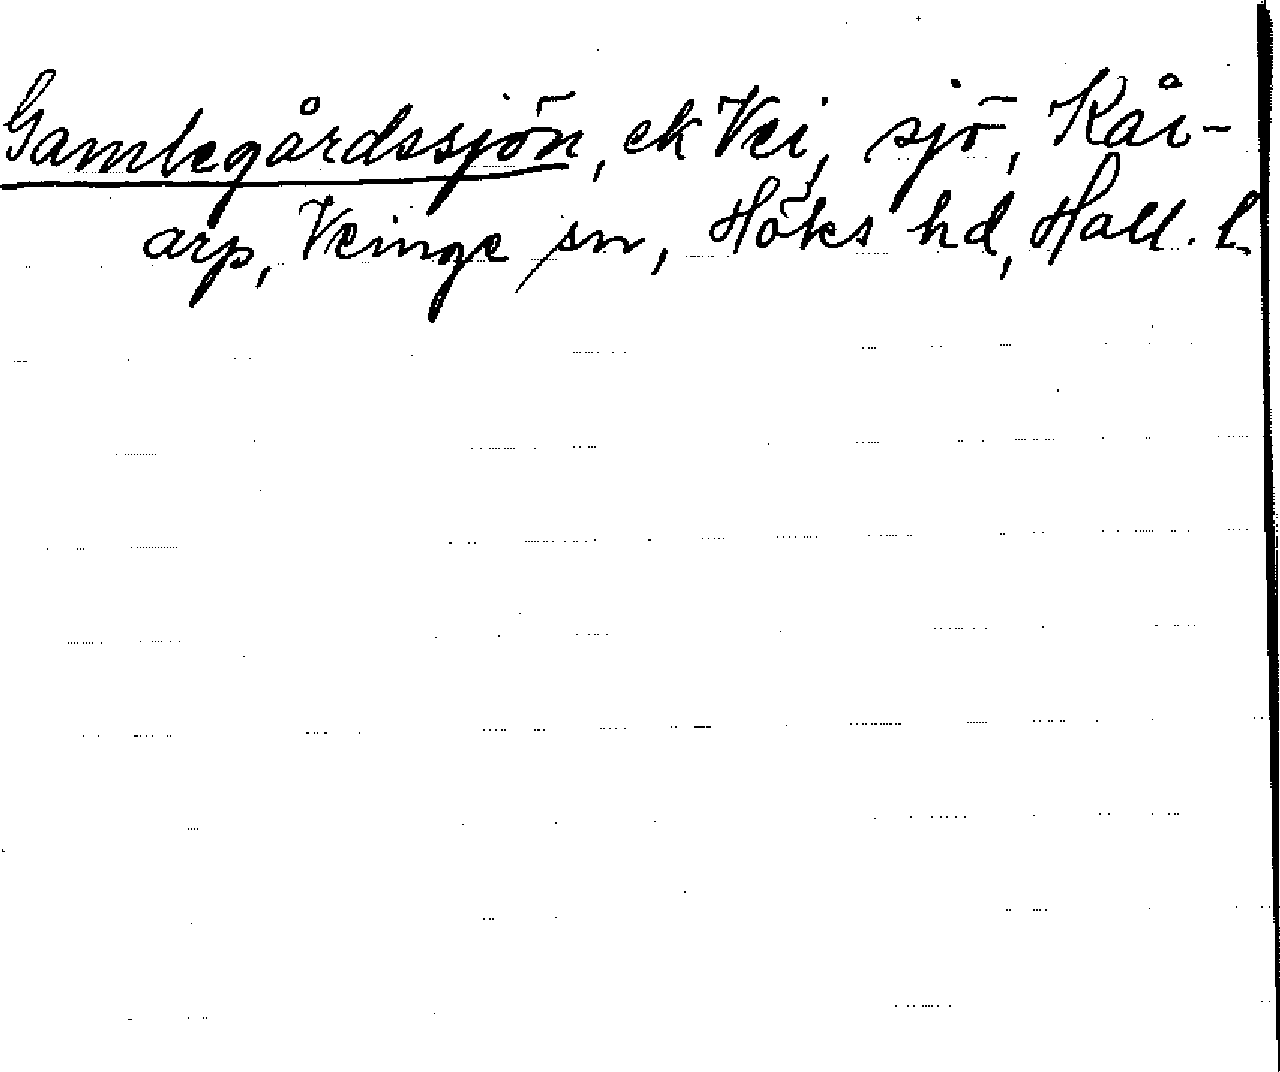 Gamlegårdssjön, ek Vei, sjö, Kår-
arp, Veinge sn, Höks hd, Hall. l.